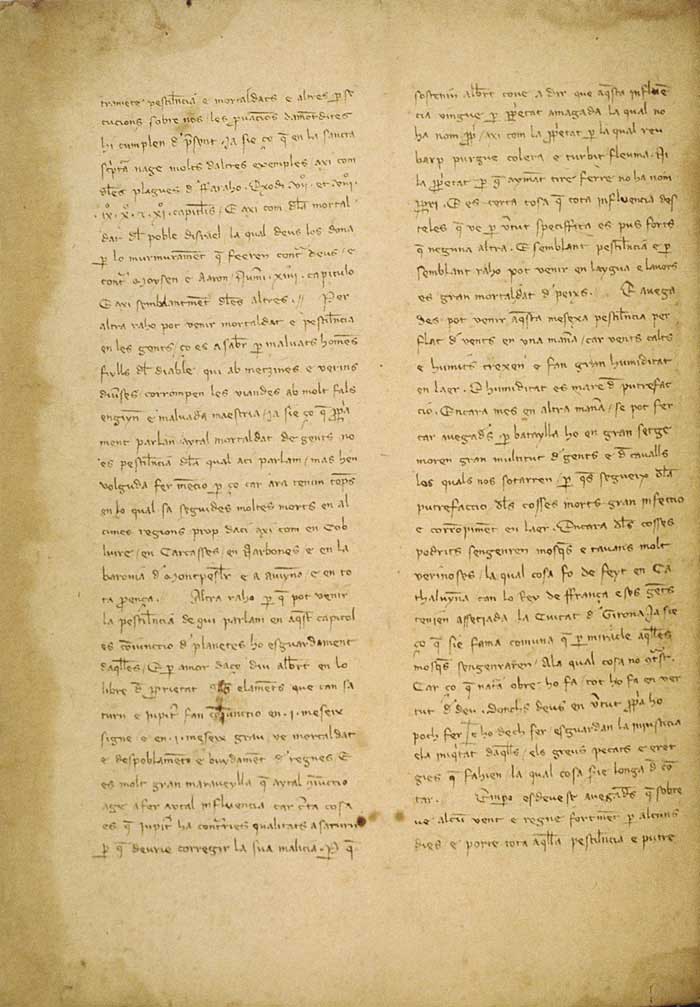 trameté pestilēncia e mortaldats e altres ꝑ se
cucions sobre nos les pͥuacions damōtdites
hi cumplen d pͥsent . Ja sie ço q̄ en la sancta
scͥptͣa nage molts daltres exemples / axi com
dl̄es plagues d ffaraho . Exodi . vij . et . viij .
. ix . x . z . xi . capitulis / E axi com dl̄a mortal
dat dl̄ poble disrael la qual deus los dona
ꝑ lo murmuramēt q̄ feeren contͣ deus / e
contͣ Moysen e Aaron / Numi . xiiij . capitulo
E axi semblantmēt dl̄es altres . // Per
altra raho pot venir mortaldat e pestilēncia
en les gents / ço es a sabr̄ ꝑ maluats homēs
fiylls dl̄ diable qui ab metzines e verins
diuerses corrompen les viandes ab molt fals
enginy e maluada maestria / Ja sie ço q̄ ꝓpͥa
ment parlan aytal mortaldat de gents no
es pestilēncia dl̄a qual aci parlam / mas hen
volguda fer mēcio ꝑ ço car ara tenim tēps
en lo qual sa seguides moltes morts en al
cunes regions prop daci axi com en Cob
liure / en Carcasses / en Narbones e en la
baronia d Montpesl̄r e a auinyo / e en to
ta proença . Altra raho ꝑ q̄ pot venir
la pestilēncia de qui parlam en aq̄st capitol
es cōiunctio d planetes ho esguardament
daq̄lles / E ꝑ amor daço diu albert en lo
libre d ꝓprietat dels elaments que can sa
turn e iupiṫ fan cōiunctio en . i . meseix
signe e en . i . meseix grau / ve mortaldat
e despoblamēt e buydament d regnes . E
es molt gran maraueylla q̄ aytal cōiūctio
age a fer aytal influencia car certa cosa
es q̄ iupiṫ ha contͣries qualitats a saturn
ꝑ q̄ deurie corregir la sua malicia . ꝑ q̄
sostenin albert coue a dir que aq̄sta influē
cia vingue ꝑ ꝓpͥetat amagada la qual no
ha nom ꝓpͥ / axi com la ꝓpͥetat ꝑ la qual reu
barp purgue colera e turbit fleuma . Ni
la ꝓpͥetat ꝑ q̄ aymāt tire ferre no ha nom
ꝓpri . E es certa cosa q̄ tota influencia des
teles q̄ ve ꝑ vͥtut speciffica es pus forts
q̄ neguna altra . E semblant pestilēcia e ꝑ
semblant raho pot venir en laygua e lauors
es gran mortaldat d peixs . E auega
des pot venir aq̄sta mesexa pestilēncia per
flat d vents en una man̄a / car vents calts
e humits crexen e fan gran humiditat
en laer . E humiditat es mare d putrefac
cio . Encara mes en altra man̄a / se pot fer
car auegads ꝑ bataylla ho en gran setge
moren gran multitut d gents e d cauaylls
los quals nos sotarren / ꝑ q̄s segueix dl̄a
putrefaccio dl̄s cosses morts gran infectio
e corrōpiment en laer . Encara dl̄s cosses
podrits sengenren mosq̄s e tauans molt
verinoses / la qual cosa fo de feyt en Ca
thalunya can lo Rey de ffrança e ses gents
tenien assetiada la Ciutat d Girona Ja sie
ço q̄ sie fama comuna q̄ ꝑ miracle aq̄lles
mosq̄s sengenraren / Ala qual cosa no cōtͣst .
Car ço que natͣa obre ho fa / tot ho fa en ver
tut d deu . donchs deus en vͥtut ꝓpͥa ho
poch fer e ho dech fer / esguardan la iniusticia
e la iniqͥtat daq̄lls / els greus pecats e eret
gies q̄ fahien la qual cosa sie longa d cō
tar . Empo esdeuese auegads q̄ sobre
ve alcū vent e regne fortmēt ꝑ alcuns
dies e porte tota aq̄lla pestilēcia e putre